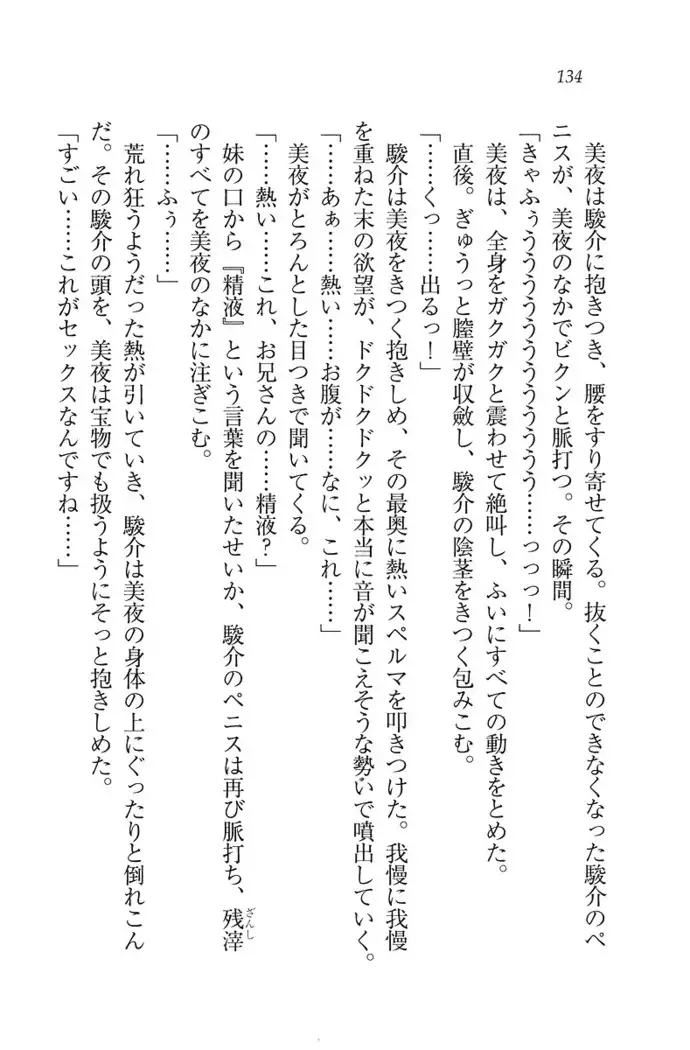 134
美夜は駿介に抱きつき、腰をすり寄せてくる。抜くことのできなくなった駿介のペ
ニスが、美夜のなかでビクンと脈打つ。その瞬間。
「きゃふぅうううううううううううう……っっっ！」
美夜は、全身をガクガクと震わせて絶叫し、ふいにすべての動きをとめた。
直後。ぎゅうっと膣壁が収斂し、駿介の陰茎をきつく包みこむ。
「……くっ……出るっ！」
駿介は美夜をきつく抱きしめ、その最奥に熱いスペルマを叩きつけた。我慢に我慢
を重ねた末の欲望が、ドクドクドクッと本当に音が聞こえそうな勢いで噴出していく。
「……あぁ……熱い……お腹が……なに、これ……」
美夜がとろんとした目つきで聞いてくる。
「……熱い……これ、お兄さんの……精液？」
妹の口から『精液』という言葉を聞いたせいか、駿介のペニスは再び脈打ち、残滓
ざんし
のすべてを美夜のなかに注ぎこむ。
「……ふぅ……」
荒れ狂うようだった熱が引いていき、駿介は美夜の身体の上にぐったりと倒れこん
だ。その駿介の頭を、美夜は宝物でも扱うようにそっと抱きしめた。
「すごい……これがセックスなんですね……」